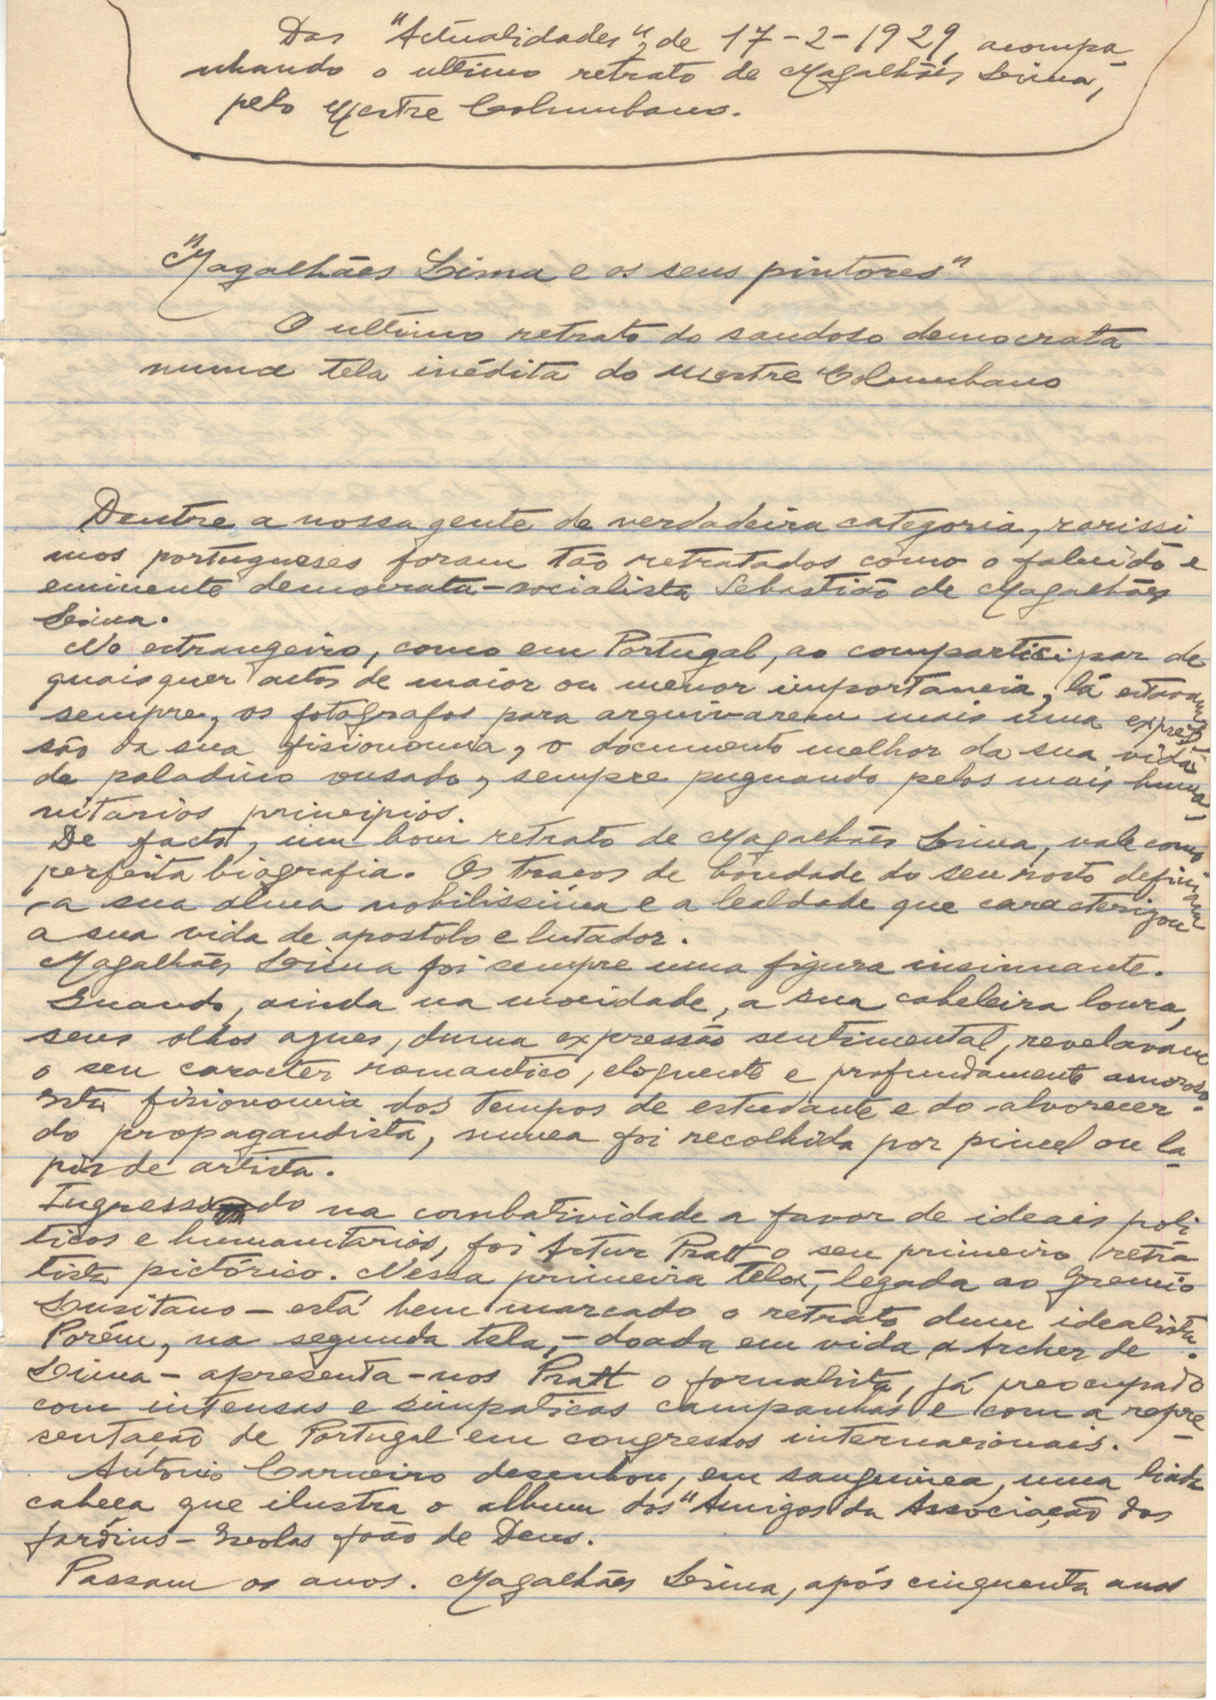 Das "Actualidades", de 17-2-1929, acompa-
nhando o ultimo retrato de Magalhães Lima,
pelo Mestre Columbano.
"Magalhães Lima e os seus pintores"
O ultimo retrato do saudoso democrata
numa tela inédita do Mestre Columbano
Dentre a nossa gente de verdadeira categoria, rarissi
mos portugueses foram tão retratados como o falecido e
eminente democrata-socialista Sebastião de Magalhães
Lima.
No estrangeiro, como em Portugal, ao comparticipar de
quaisquer actos de maior ou menor importancia, lá estavam
sempre, os fotografos para arquivarem mais uma expres-
são da sua fisionomia, o documento melhor da sua vida
de paladino ousado, sempre pugnando pelos mais huma-
nitarios principios.
De facto, um bom retrato de Magalhães Lima, vale como
perfeita biografia. Os traços de bondade do seu rosto definiam
a sua alma nobilissima e a lealdade que caracterizou
a sua vida de apostolo e lutador.
Magalhães Lima foi sempre uma figura insinuante.
Quando, ainda na mocidade, a sua cabeleira loura,
seus olhos azues, duma expressão sentimental, revelavam
o seu caracter romantico, eloquente e profundamente amoroso.
Esta fisionomia dos tempos de estudante e do alvorecer
do propagandista, nunca foi recolhida por pincel ou la-
pis de artista.
Ingressado na combatividade a favor de ideais poli
ticos e humanitarios, foi Artur Pratt o seu primeiro retra
tista pictórico. Nessa primeira tela, - legada ao Gremio
Lusitano - está bem marcado o retrato dum idealista.
Porém, na segunda tela, - doada em vida a Archer de
Lima - apresenta-nos Pratt o jornalista, já preocupado
com intensas e simpaticas campanhas e com a repre-
sentação de Portugal em congressos internacionais.
António Carneiro desenhou, em sanguinea, uma linda
cabeça que ilustra o album dos "Amigos da Associação dos
Jardins-Escolas João de Deus.
Passam os anos. Magalhães Lima, após cinquenta anos